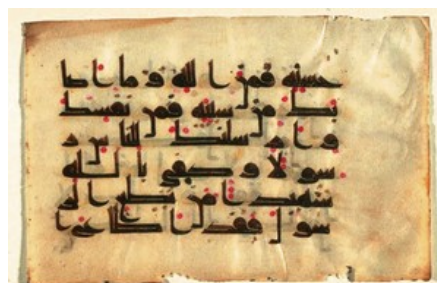 حسنه فمن الله وما اصا
بك من سيئه فمن نفسك
و ارسلنك للناس ر
سولا وكفى بالله
شهيدا من يطع الر
سول فقد اطاع ا